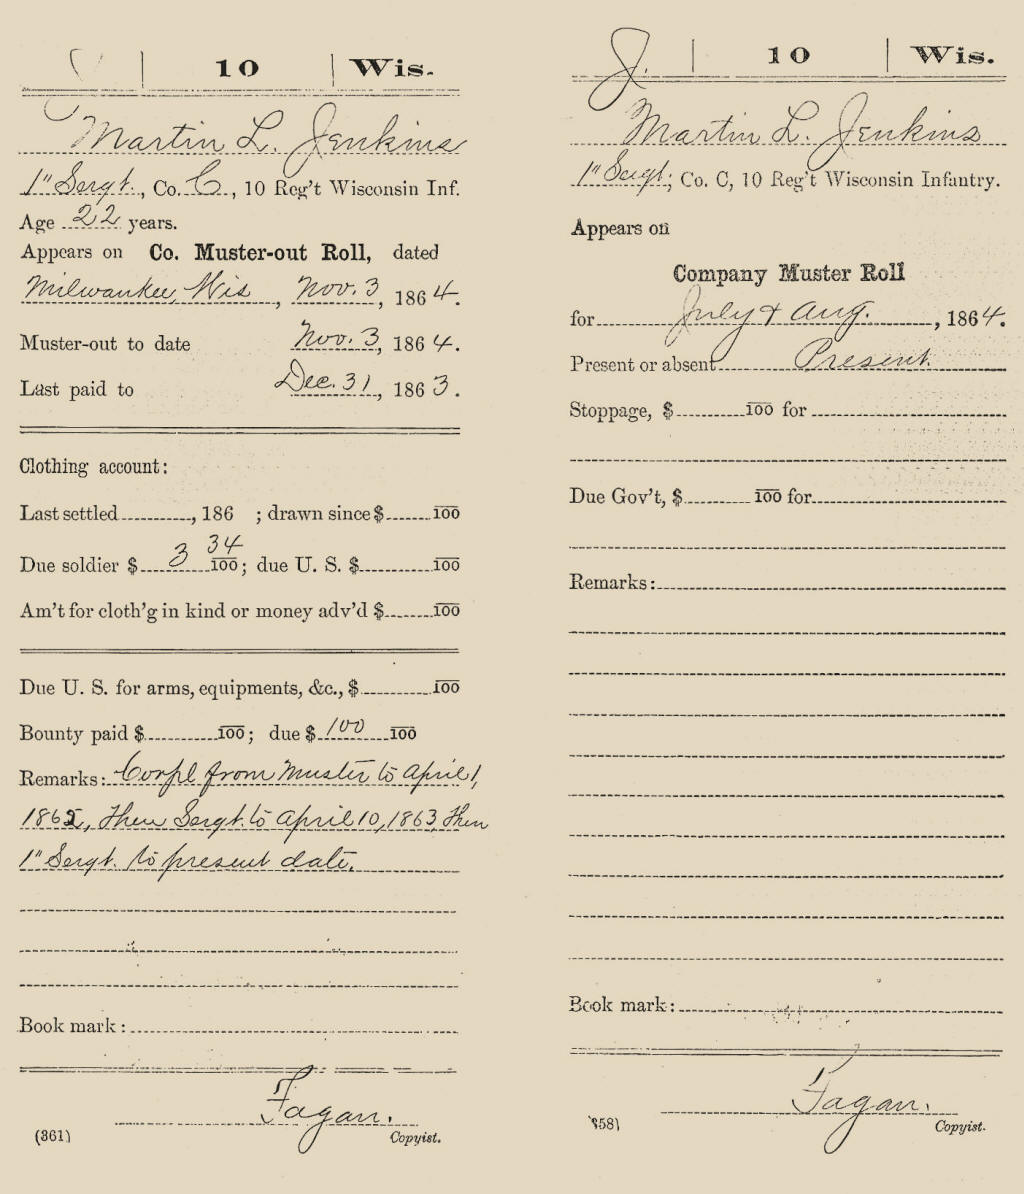 10 | Wis.
Martin L. Jenkins
1" Sergt., Co. C., 10 Reg't Wisconsin Inf.
Age 22 years.
Appears on Co. Muster-out Roll, dated
Milwaukee, Wis, Nov. 3, 1864.
Muster-out to date Nov. 3, 1864.
Last paid to Dec. 31, 1863.
Clothing account:
Last settled, 186 ; drawn since $ 100
Due soldier $ 3 34/100; due U. S. $ 100
Am't for cloth'g in kind or money adv'd $ 100
Due U. S. for arms, equipments, &c., $ 100
Bounty paid $ 100; due $ 100 100
Remarks: Corpl from Muster to April 1,
1862, then Sergt. to April 10, 1863, then
1" Sergt. to present date.
Book mark:
Fagan.
(361) Copyist.
J. | 10 | Wis.
Martin L. Jenkins
1" Sergt, Co. C, 10 Reg't Wisconsin Infantry.
Appears on
Company Muster Roll
for July & Aug., 1864.
Present or absent Present.
Stoppage, $ 100 for
Due Gov't, $ 100 for
Remarks:
Book mark:
Fagan.
358) Copyist.